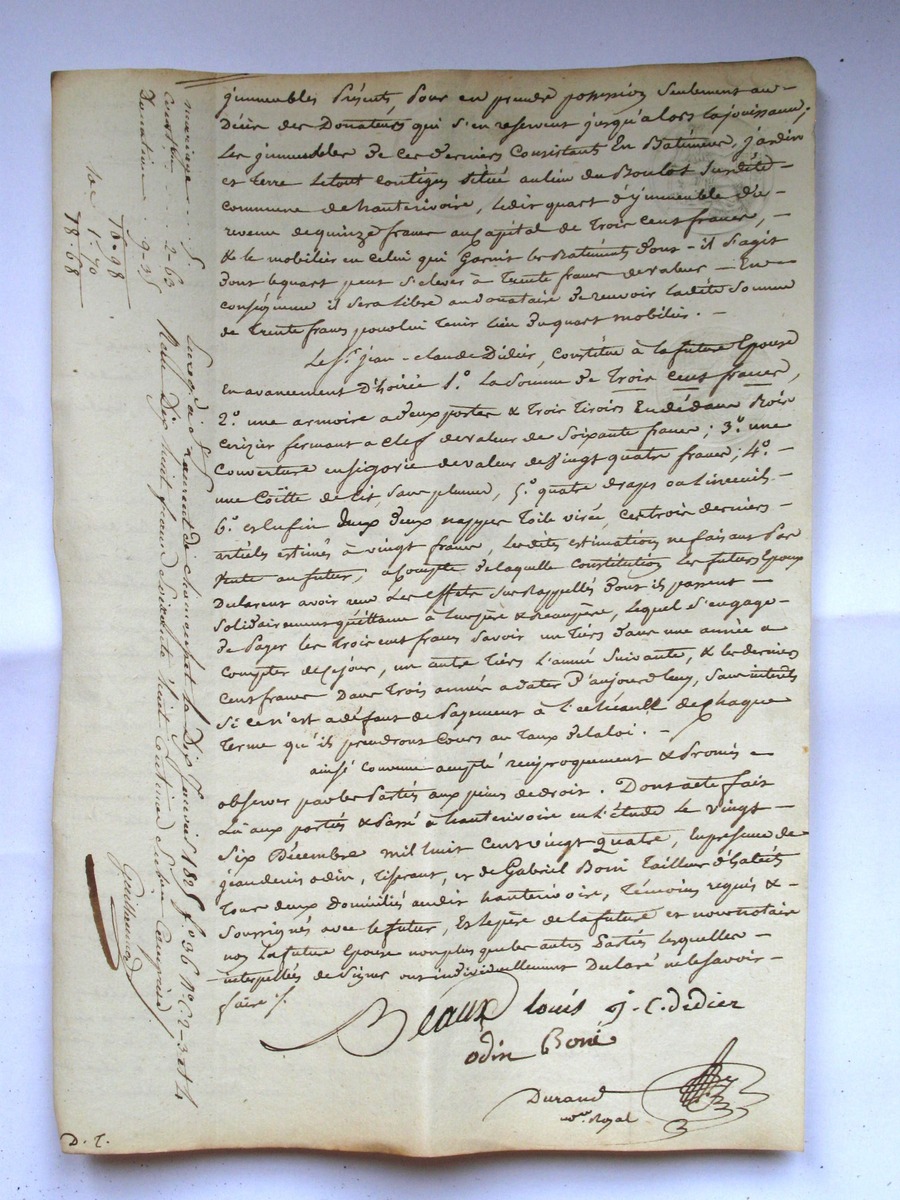 jmmeubles Présents, Pour en prendre possession Seulement au
Décès des Donateurs qui S'en réservent jusqu'alors la jouissance;
Les jmmeubles De ces Derniers Consistants En Bâtiments, jardin
et Terre Letout Contigus Situé aulieu du Boulot Susdite
Commune de hauterivoire, Ledit quart D'jmmeuble De
revenu de quinze francs au Capital de Trois Cent francs,
& le mobilier en Celui qui Garnit les Batiments Dont il S'agit
Dont lequart peut S'elever à Trente francs de valeur — En
conséquence il Sera libre au Donataire De recevoir Ladite Somme
de Trente francs pour lui Tenir Lieu Du quart mobilier. —
Le Sr. jean-claude Didier, Constitue à la future Epouse
En avancement D'hoirie 1o. La Somme De Trois Cent francs,
2o. une armoire a Deux portes & Trois Tiroirs En dedans Bois
Cerizier fermant a Clef de valeur de Soixante francs; 3o. une
Couverture de valeur de Vingt quatre francs; 4o.
une Coëtte de Lit, Sans plumes, 5o. quatre Draps
6o. et Enfin Deux nappes Toile cestrois derniers
articles estimés à vingt francs, Lesdites estimations nefaisant Pas
Vente au futur; acompte Delaquelle Constitution Les futurs Epoux
Declarent avoir reçu Les Effets Sus Rappellés Dont ils passent
Solidairement quittance à Leurpère & Beaupère, Lequel S'engage
de Payer les Trois cent francs Savoir un Tiers Dans une année a
Compter de Cejour, un autre Tiers L'année Suivante, & les derniers
Cent francs Dans Trois années adater D'aujourd'huy, Sans interets
Si ce n'est a défaut de Payement à L'echéance de chaque
Terme qu'ils prendront Cours au Taux delaloi. —
ainsi Convenu accepté réciproquement & Promis
observer par les Parties aux peines de droit. Dont acte fait
Lu aux parties & Passé à hauterivoire en L'étude le vingt
Six Décembre mil huit Cent vingt quatre, En présence de
jean denis odin, Tisserant, et de Gabriel Boni Tailleur D'habits
Tous deux Domiciliés audit hauterivoire, Témoins requis &
Soussignés avec le futur, Et lepère de la future et nous notaire
non La future Epouse nonplus que les autres Parties Lesquelles
interpellées de Signer ont individuellement Declaré ne le Savoir
faire ./.
Beaux louis j. C. dedier
odin Boné
Durand
nore. Royal
D. T.
Enregé. à St. Laurent de chamousset le Dix Janvier 1825 fo. 36 Ro. C. 2 - 3 et 4
Reçu Dix huit francs Soixante huit Centimes
Guillermet
mariage . . 5.
Const.on . . 2-63
Donation . 9-35
16-98
1e. 1-70
18-68